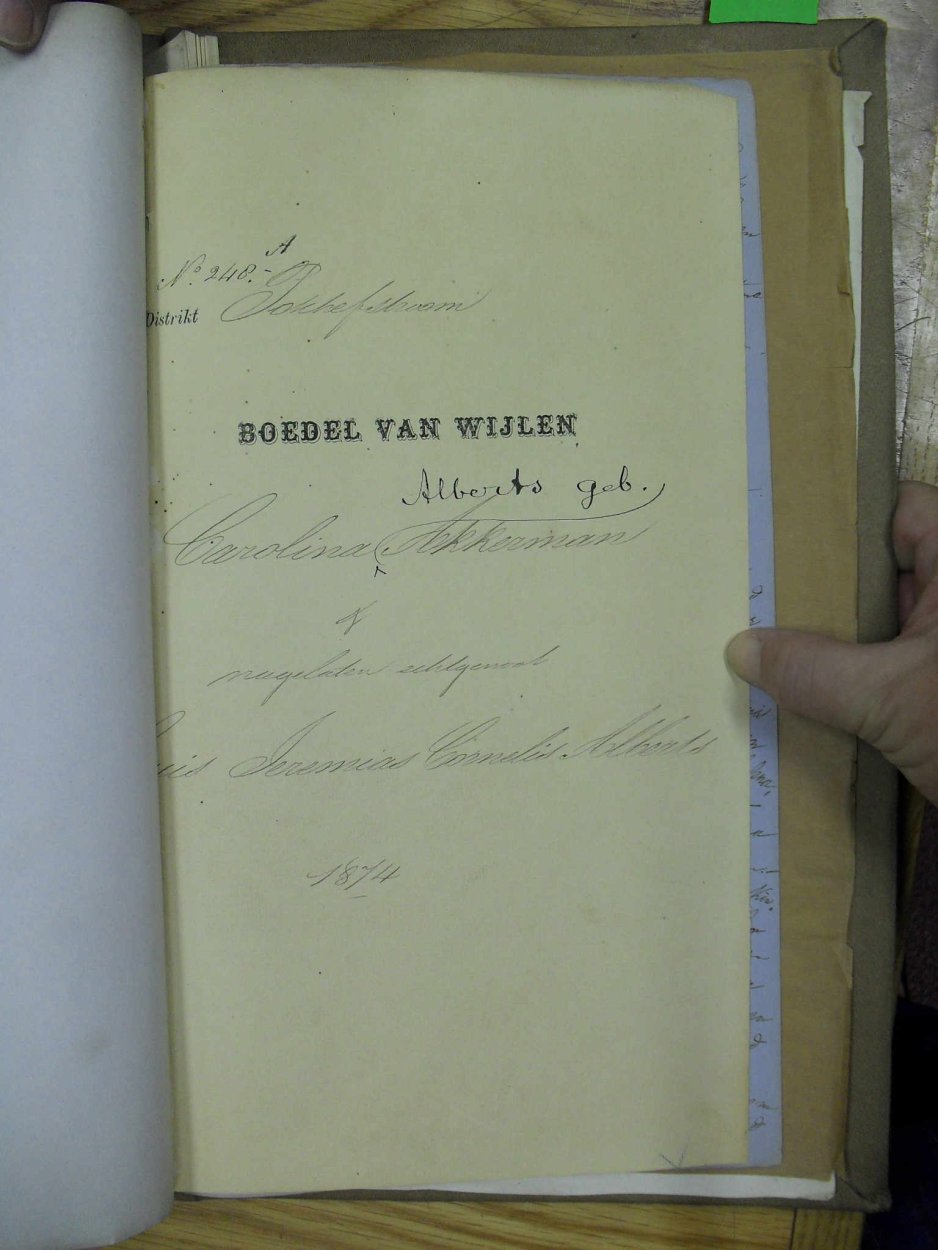 A
No. 248.-
Distrikt Potchefstroom
BOEDEL VAN WIJLEN
Alberts geb.
Carolina Akkerman
&
nagelaten echtgenoot
Jeremias Cornelis Alberts
1874